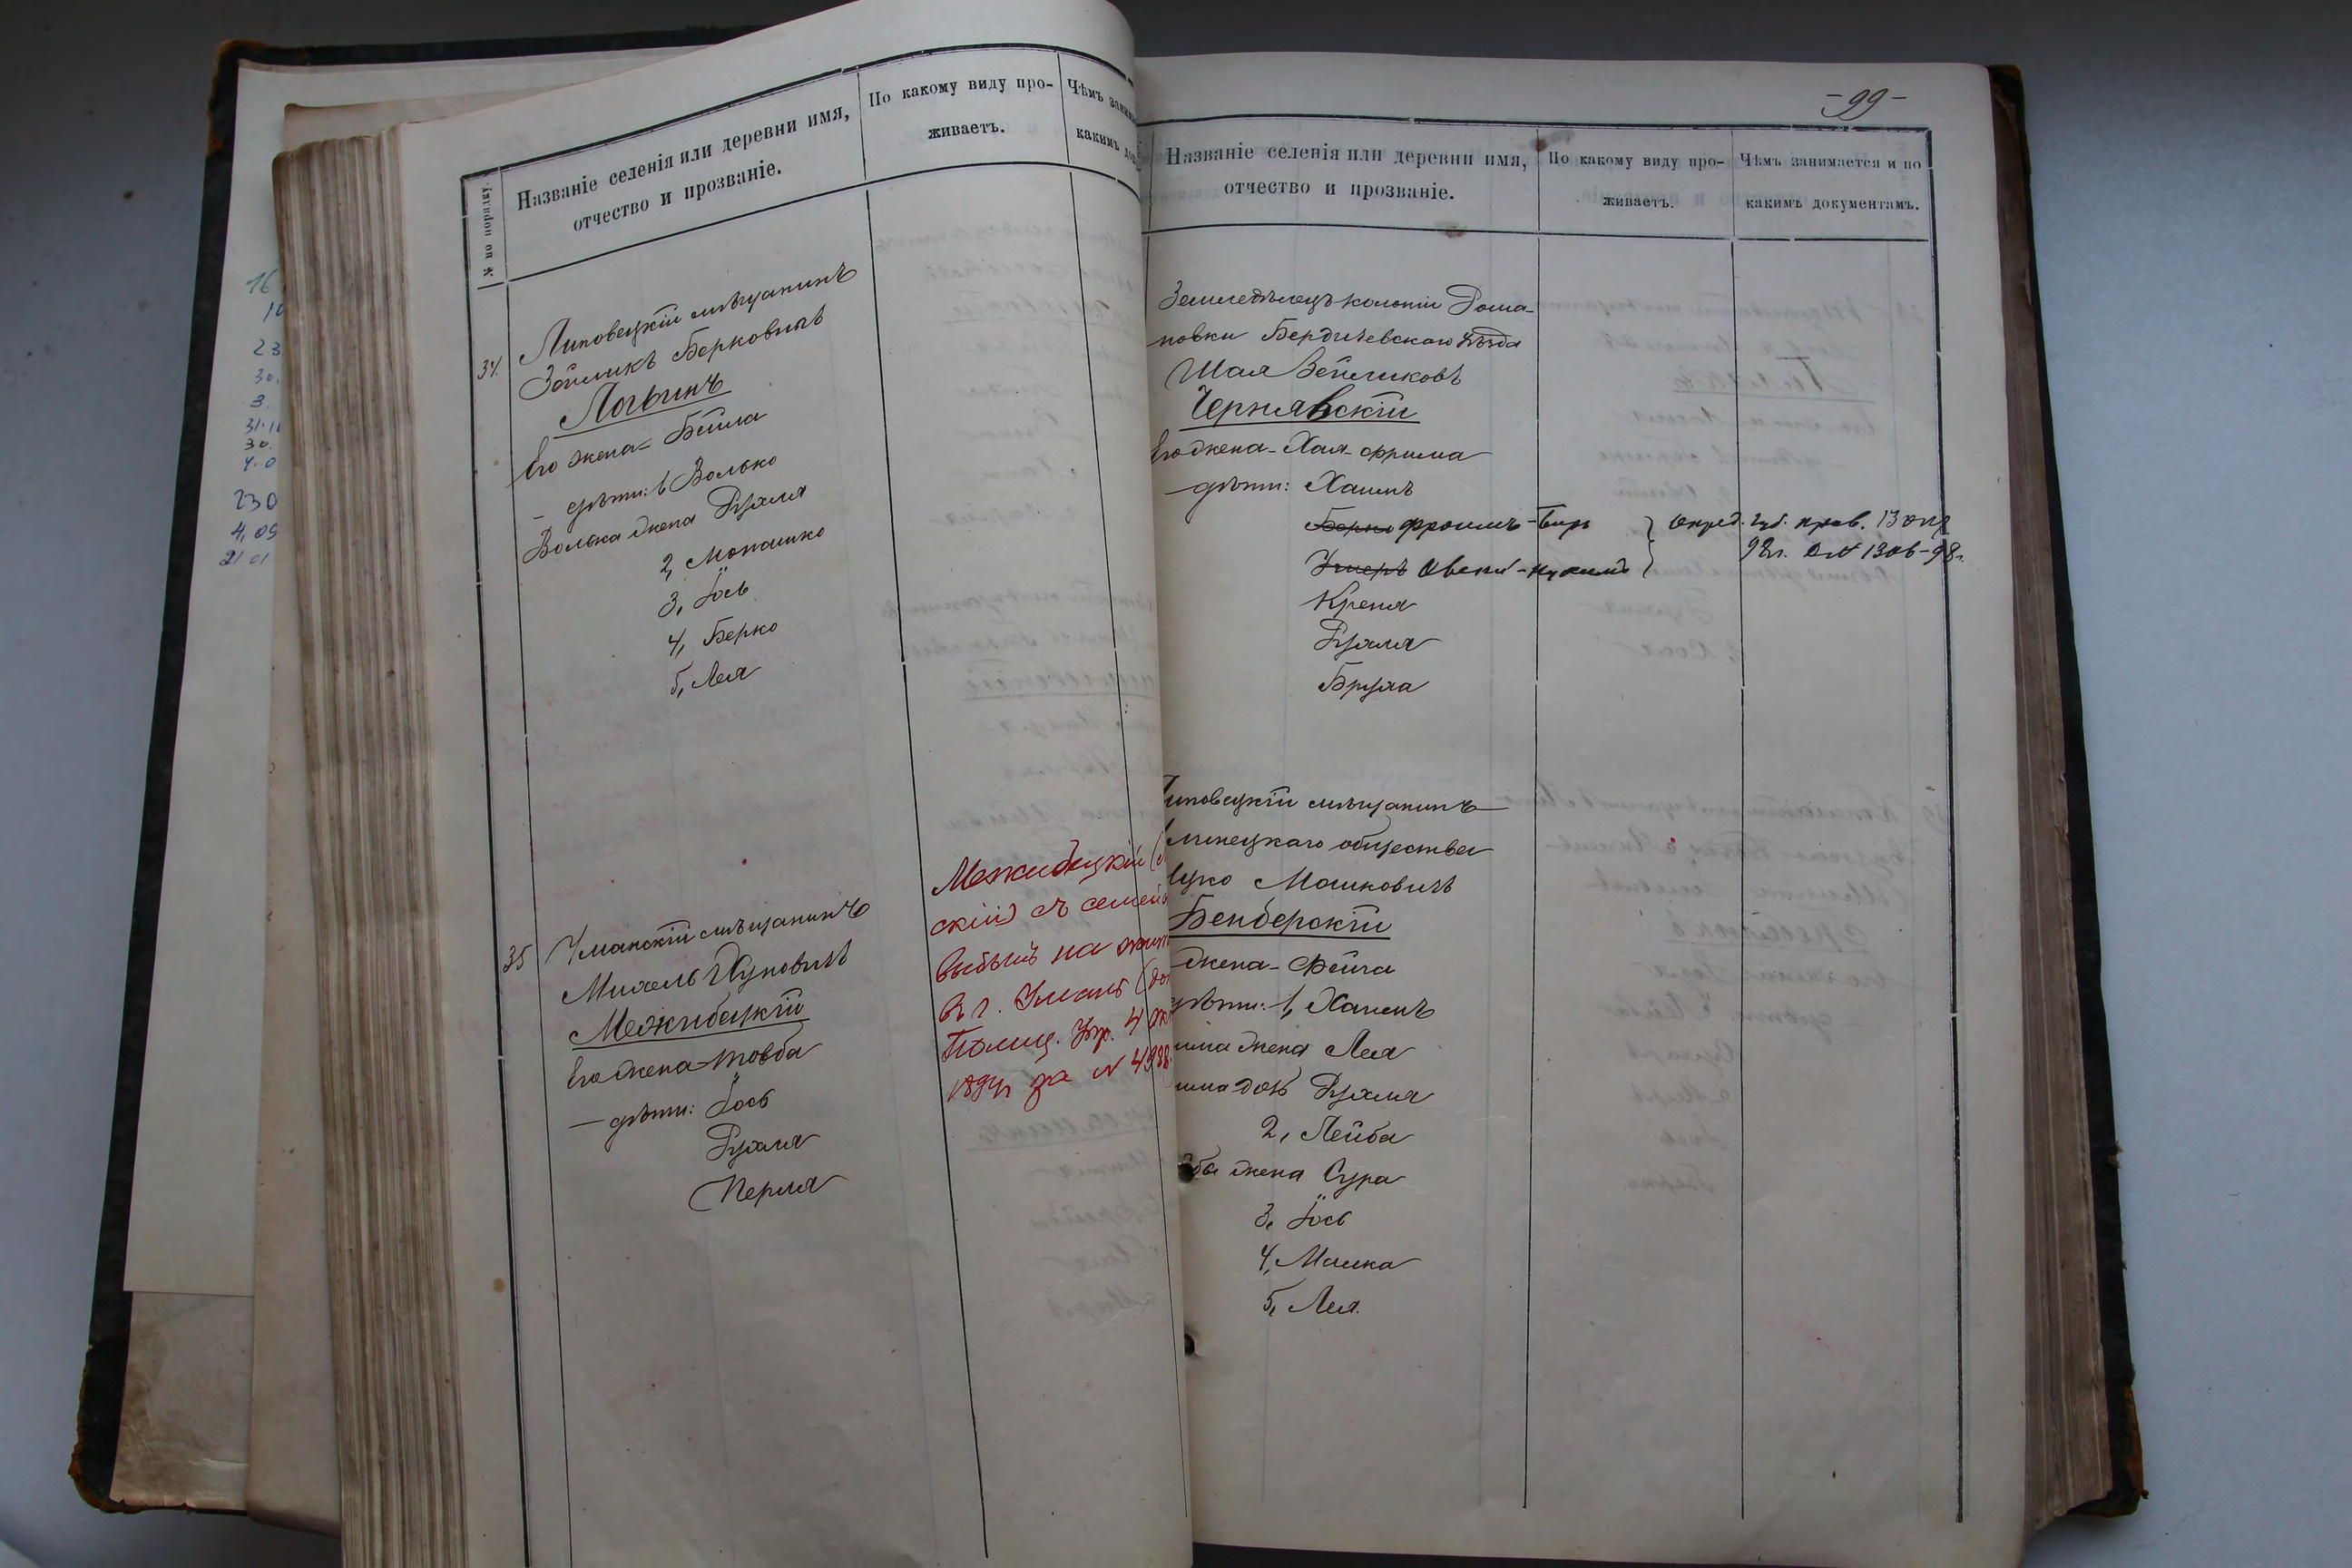 16
10
23
30.
3.
31.11
30.
4.0
230
4,09
21.01
№ по порядку.
Названіе селенія или деревни имя,
отчество и прозваніе.
По какому виду про-
живаетъ.
Чѣмъ
какимъ
34.
Липовецкій мѣщанинъ
Зейликъ Берковичъ
Логвинъ
Его жена= Бейла
– дѣти: 1 Волько
Волька жена Рухля
2, Монашко
3, Іось
4, Берко
5, Лея
35
Уманскій мѣщанинъ
Михель Дуновичъ
Межибецкій
Его жена-Товба
– дѣти: Іось
Рухля
Перля
Межибецкій
скій) съ семей
выбылъ на жит
въ г. Умань
Полиц. Упр. 4
1894г за № 4988
-99-
Названіе селенія или деревни имя,
отчество и прозваніе.
По какому виду про-
живаетъ.
Чѣмъ занимается и по
какимъ документамъ.
Земледѣлецъ колоніи Рома-
новки Бердичевскаго уѣзда
Шая Зейликовъ
Чернявскій
Его жена- Хая-Фрима
– дѣти: Хаимъ
Берко Фроимъ-Беръ } опред. губ. прав. 13 апр
Ушеръ Овсей-Нухимъ } 98г. за № 1306-98г.
Креня
Рухля
Бруха
иповецкій мѣщанинъ
линецкаго общества
цко Мошковичъ
Бендерскій
жена- Фейга
дѣти: 1, Хаимъ
има жена Лея
има дочь Рухля
2, Лейба
ба жена Сура
3, Іось
4, Малка
5, Лея.